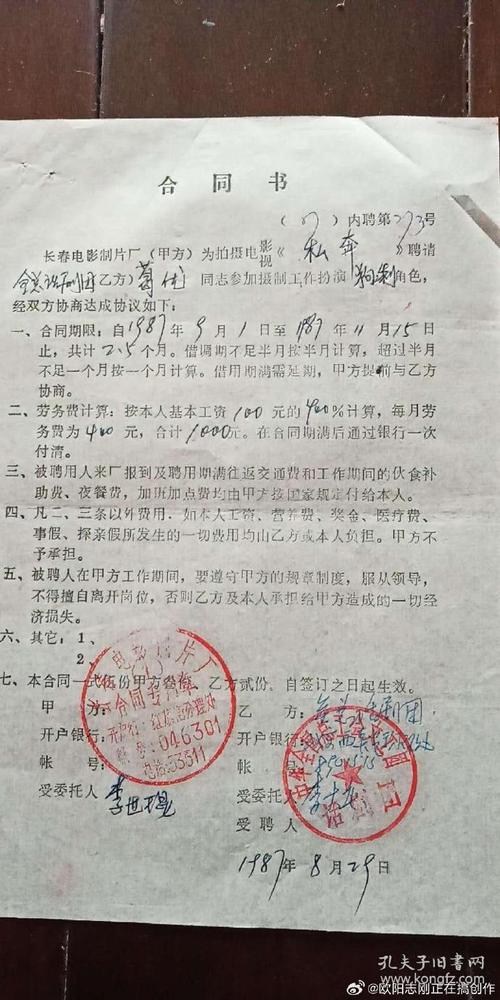 合同书
(87)内聘第273号
长春电影制片厂(甲方)为拍摄电影视《私奔》聘请
全总话剧团(乙方)葛优同志参加摄制工作扮演角色,
经双方协商达成协议如下:
一、合同期限:自1987年9月1日至1987年11月15日
止,共计2.5个月。借调期不足半月按半月计算,超过半月
不足一个月按一个月计算。借用期满需延期,甲方提前与乙方
协商。
二、劳务费计算:按本人基本工资100元的400%计算,每月劳
务费为400元,合计1000元。在合同期满后通过银行一次
付清。
三、被聘用人来厂报到及聘用期满往返交通费和工作期间的伙食补
助费、夜餐费,加班加点费均由甲方按国家规定付给本人。
四、凡二、三条以外费用,如本人工资、营养费、奖金、医疗费、
事假、探亲假所发生的一切费用均由乙方或本人负担。甲方不
予承担。
五、被聘人在甲方工作期间,要遵守甲方的规章制度,服从领导,
不得擅自离开岗位,否则乙方及本人承担给甲方造成的一切经
济损失。
六、其它:1、
2、
七、本合同一式伍份甲方叁份,乙方贰份,自签订之日起生效。
甲方:
开户银行:
帐号:
受委托人:李世
乙方:全总话剧团
开户银行:
帐号:
受委托人:
受聘人
1987年8月29日
电影制片厂
合同专用章
开户行:红旗街办理处
帐号:046301
电话:53311
中华全国总工会
话剧团
孔夫子旧书网
@欧阳志刚正在搞创作